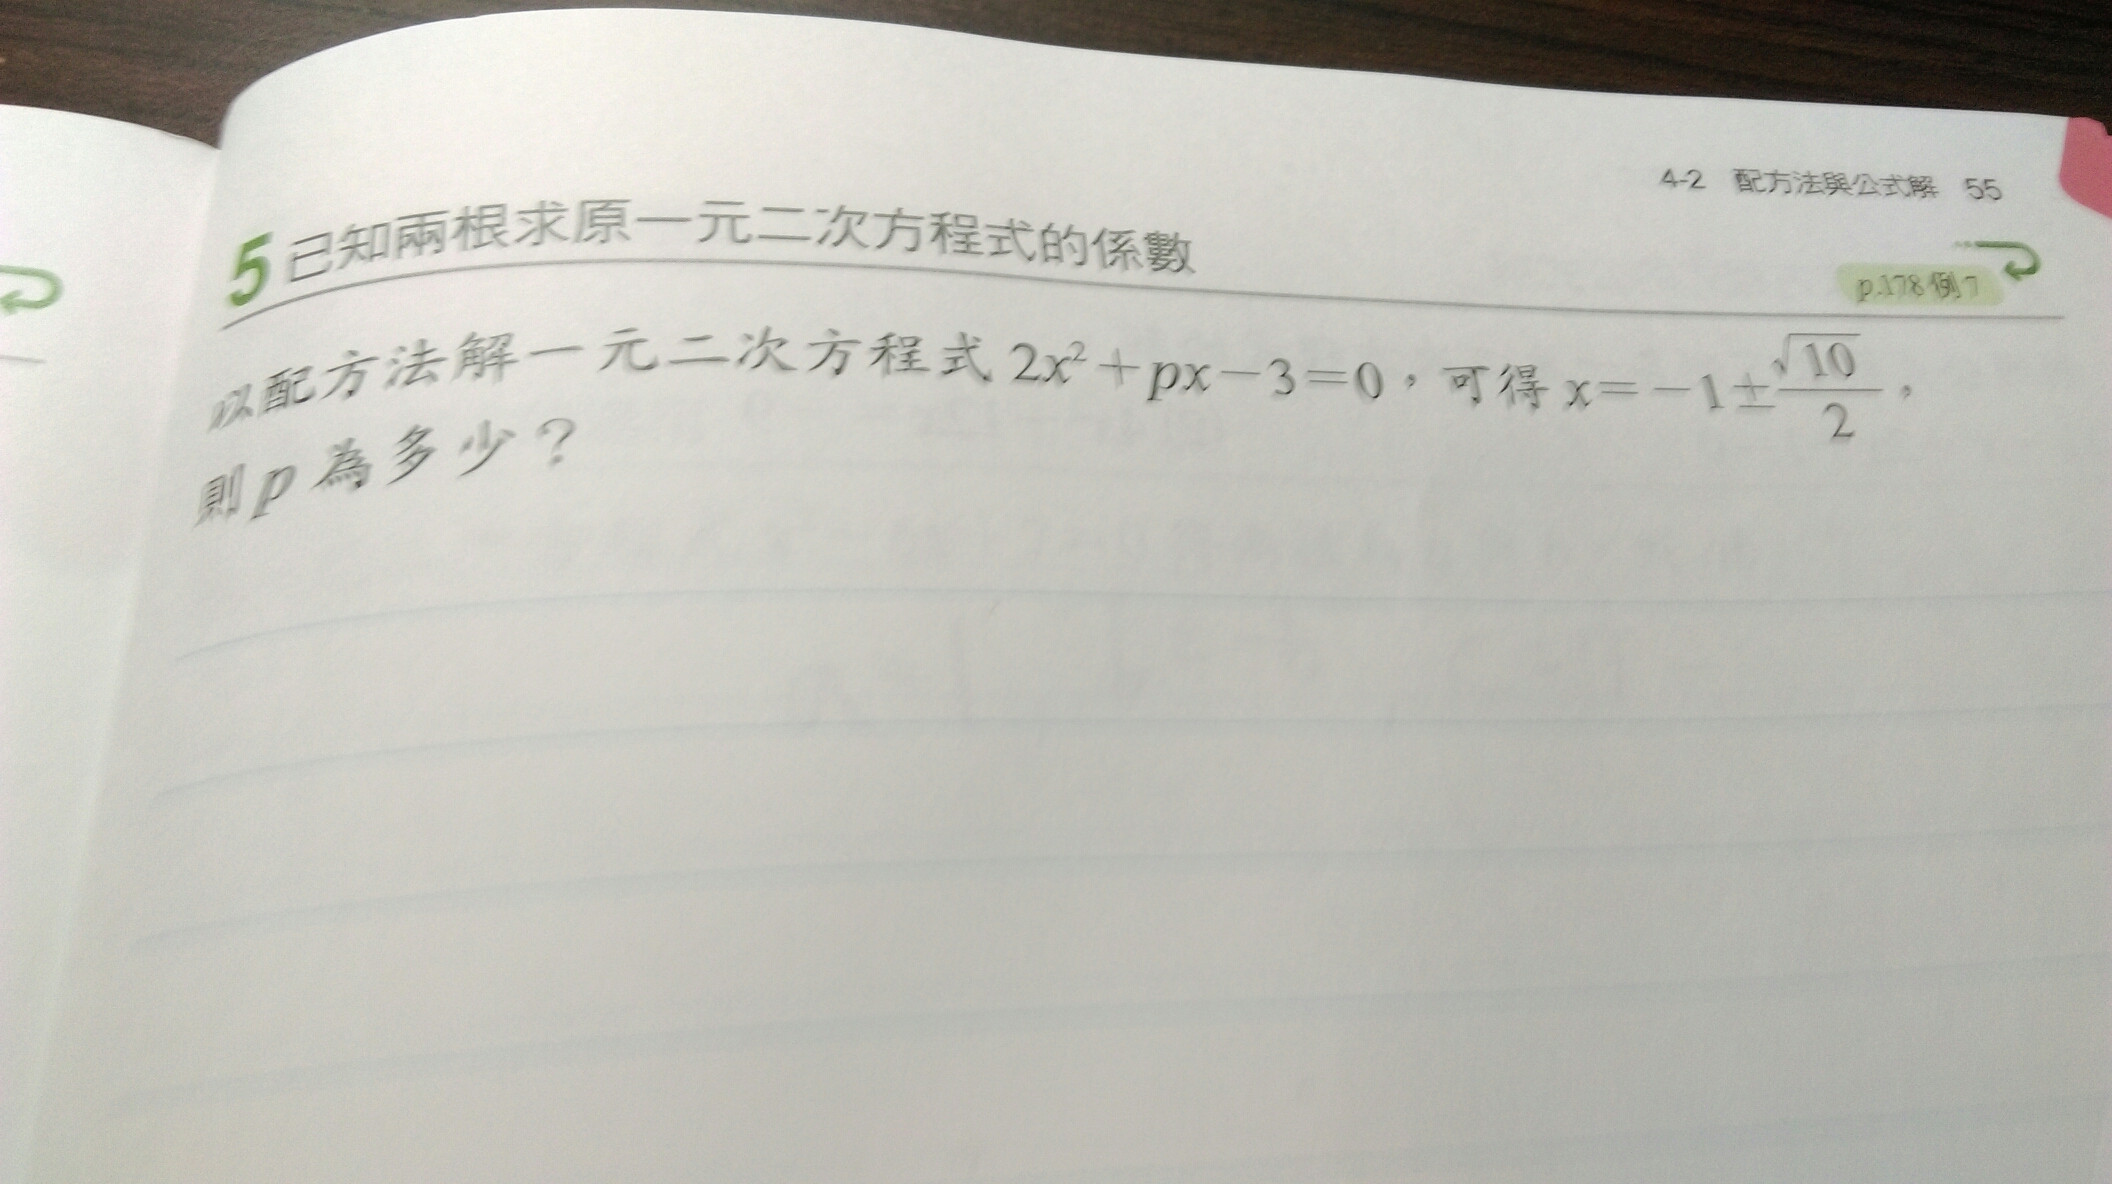 4-2 配方法與公式解 55
5 已知兩根求原一元二次方程式的係數
p.178例7
以配方法解一元二次方程式 2x²+px-3=0，可得 x=-1±√10/2，
則 p 為多少？